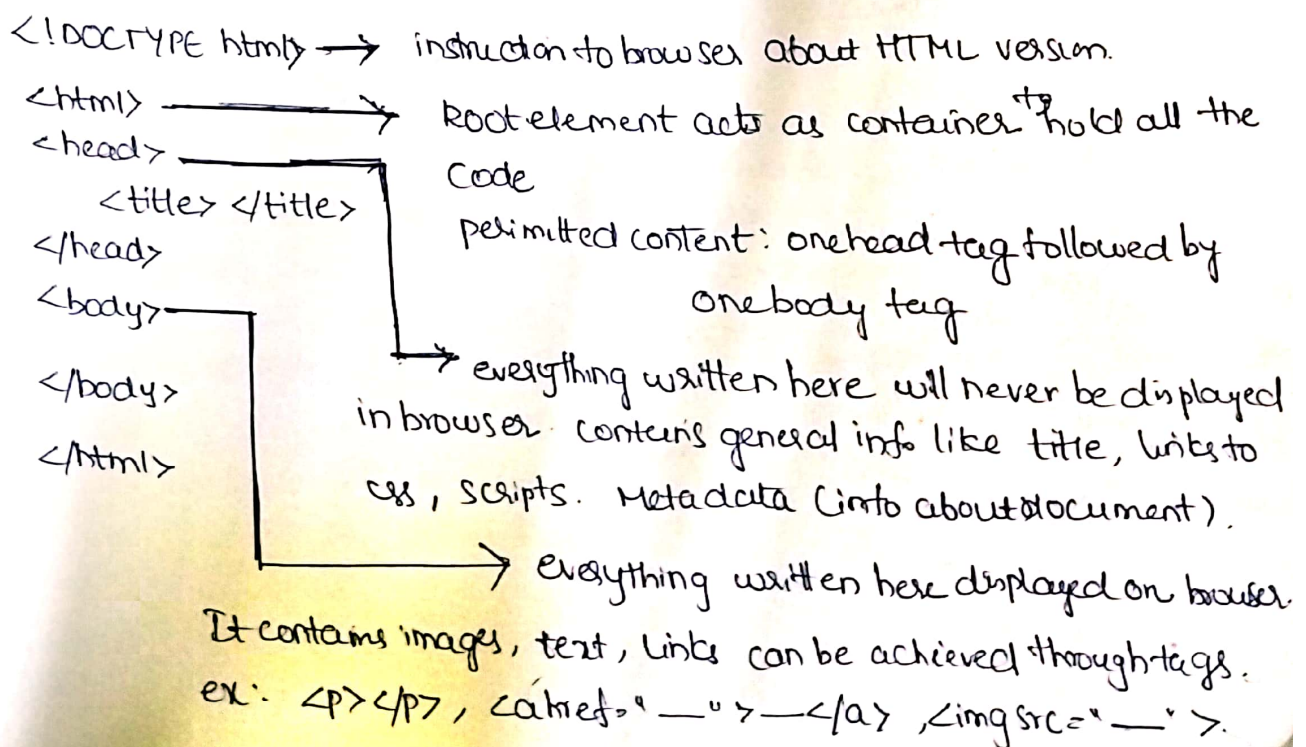 <!DOCTYPE html> → instruction to browser about HTML version.
<html> → Root element acts as container to hold all the
<head>
code
<title> </title>
permitted content: one head tag followed by
</head>
one body tag
<body>
→ everything written here will never be displayed
</body>
in browser. contains general info like title, links to
</html>
css, scripts. Metadata (info about document).
→ everything written here displayed on browser.
It contains images, text, links can be achieved through tags.
ex: <p></p>, <a href="__">__</a>, <img src="__">.